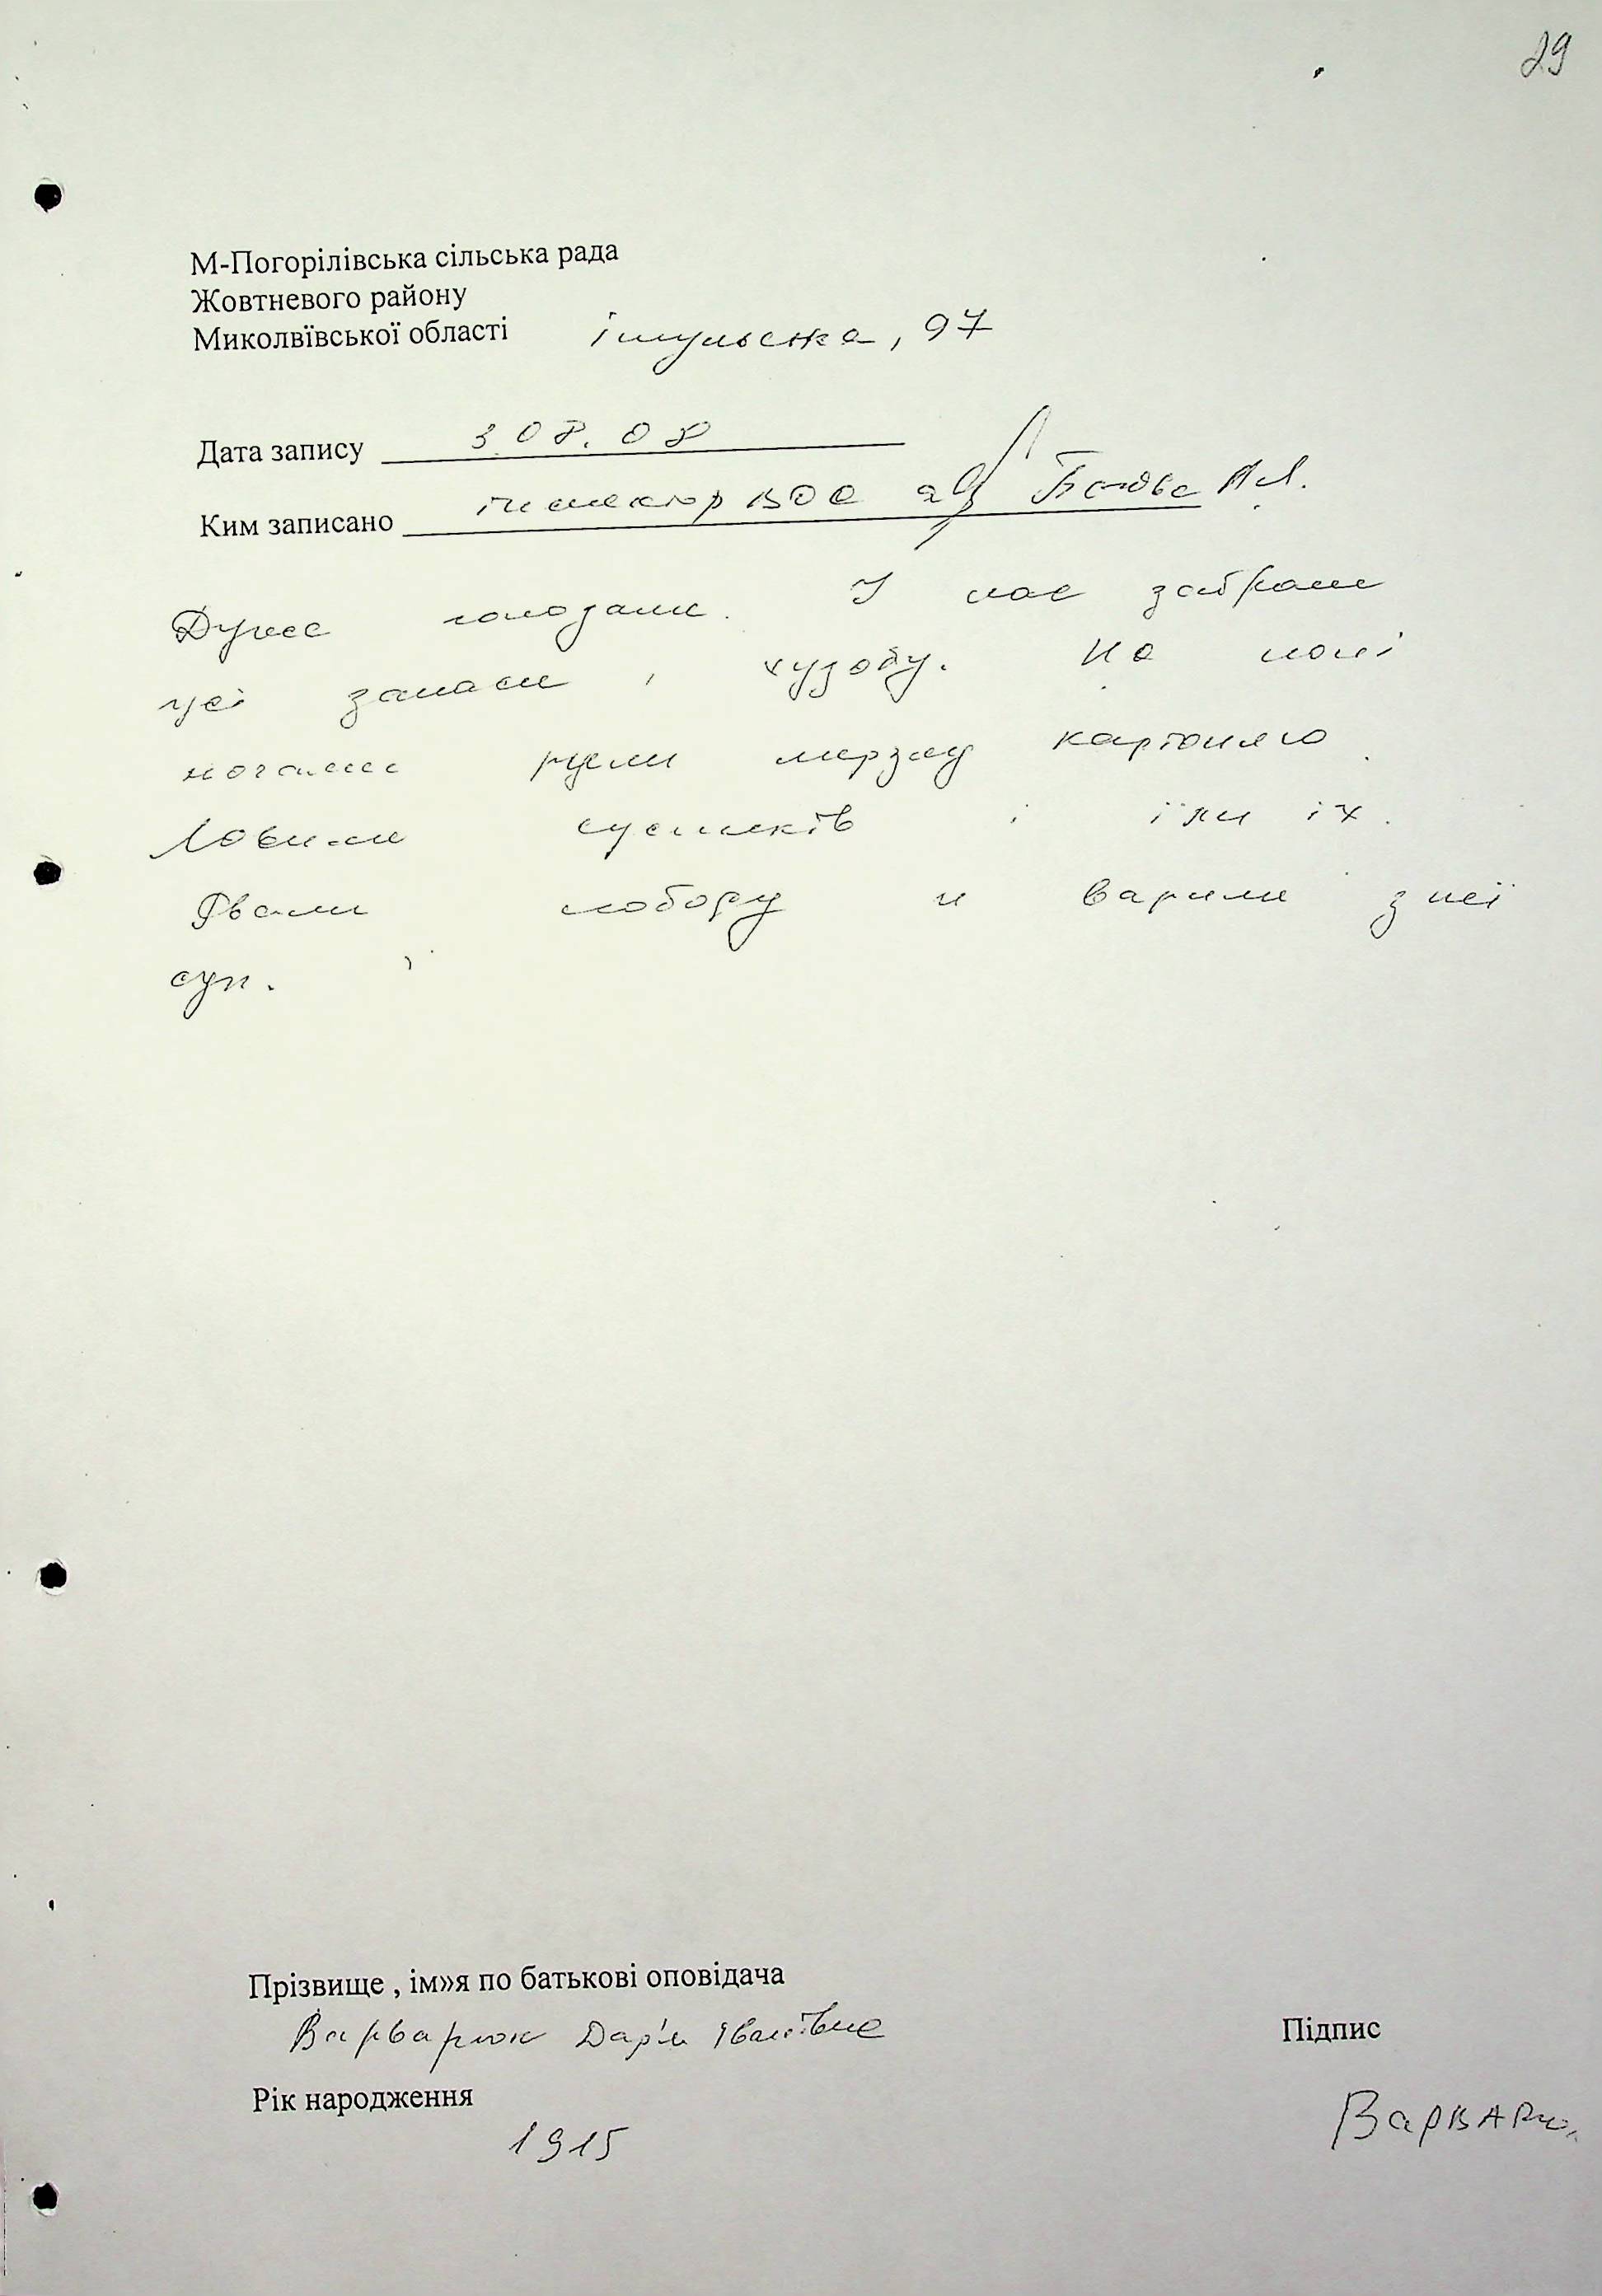 29
М-Погорілівська сільська рада
Жовтневого району
Миколвївської області , 97
Дата запису 3.08.08
Ким записано інспектор ВОС А.А.
Дуже голодали. У нас забрали
усі запаси і худобу. На полі
ночами рили мерзлу картоплю.
Ловили сусликів і їли їх.
Рвали лободу и варили з неї
суп.
Прізвище , ім»я по батькові оповідача
Варварюк Дар'я Іванівна
Підпис
Рік народження
1915
ВарВАРю